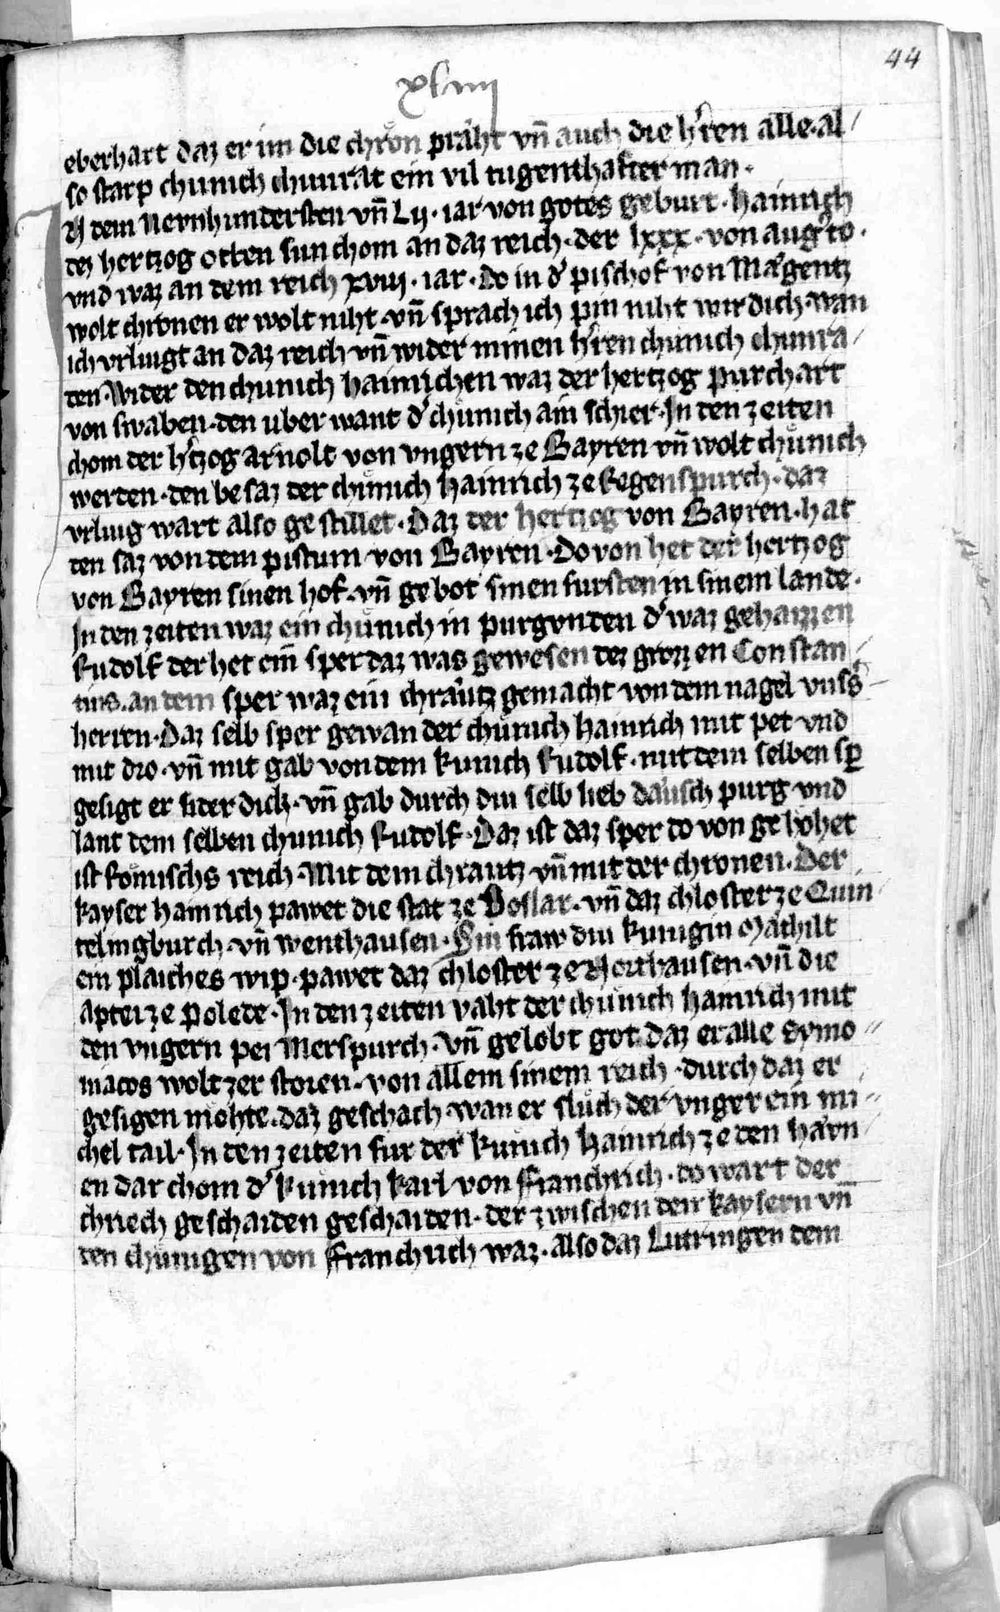 44
xliiij
eberhart daz er im die chron praht vn̄ auch die h'ren alle · al/
so starp chunich chunrat ein vil tugenthafter man ·
In dem Nevnhundersten vn̄ Lij · iar von gotes geburt · hainrich
dez hertzog otten sun chom an daz reich · der lxxx · von aug'to ·
vnd waz an dem reich xviij · iar · Do in d' pischof von Mægentz
wolt chronen er wolt niht · vn̄ sprach ich pin niht wirdich · wan
ich vrlaugt an daz reich vn̄ wider minen h'ren chunich chunra/
ten · Wider den chunich hainrichen waz der hertzog purchart
von swaben · den uber want d' chunich ain schier · In den zeiten
chom der h'tzog arnolt von vngern ze Bayren vn̄ wolt chunich
werden · den besaz der chunich hainrich ze Regenspurch · daz
vrlaug wart also gestillet · Daz der hertzog von Bayren · hat
ten saz von dem pistum von Bayren · Dovon het der hertzog
von Bayren sinen hof · vn̄ gebot sinen fursten in sinem lande ·
In den zeiten waz ein chunich in purgonden d' waz gehaizzen
Rudolf der het ein sper daz was gewesen dez grozzen Constan/
tins · an dem sper waz ein chræutz gemacht von dem nagel vns's
herren · Daz selb sper gewan der chunich hainrich mit pet vnd
mit dro · vn̄ mit gab von dem kunich Rudolf · mit dem selben sp
gesigt er sider dick · vn̄ gab durch diu selb lieb dæusch purg vnd
lant dem selben chunich Rudolf · Daz ist daz sper do von gehohet
ist Romischs reich · Mit dem chræutz vn̄ mit der chronen · Der
kayser hainrich pawet die stat ze Goslar · vn̄ daz chloster ze Quin/
telingburch · vn̄ wenthausen · Sin fraw diu kunigin Mæthilt
ein plaiches wip · pawet daz chloster ze Northausen · vn̄ die
aptei ze Polede · In den zeiten vaht der chunich hainrich mit
den vngern pei Merspurch · vn̄ gelobt got daz er alle symo//
niacos wolt zer storen · von allem sinem reich · durch daz er
gesigen mohte · daz geschach · wan er sluch der vnger ein mi//
chel tail · In den zeiten fur der kunich hainrich ze den harn/
en dar chom d' kunich karl von Franchrich · do wart der
chriech geschaiden geschaiden · der zwischen den kaysern vn̄
den chunigen von Franchrich waz · also daz Lutringen dem